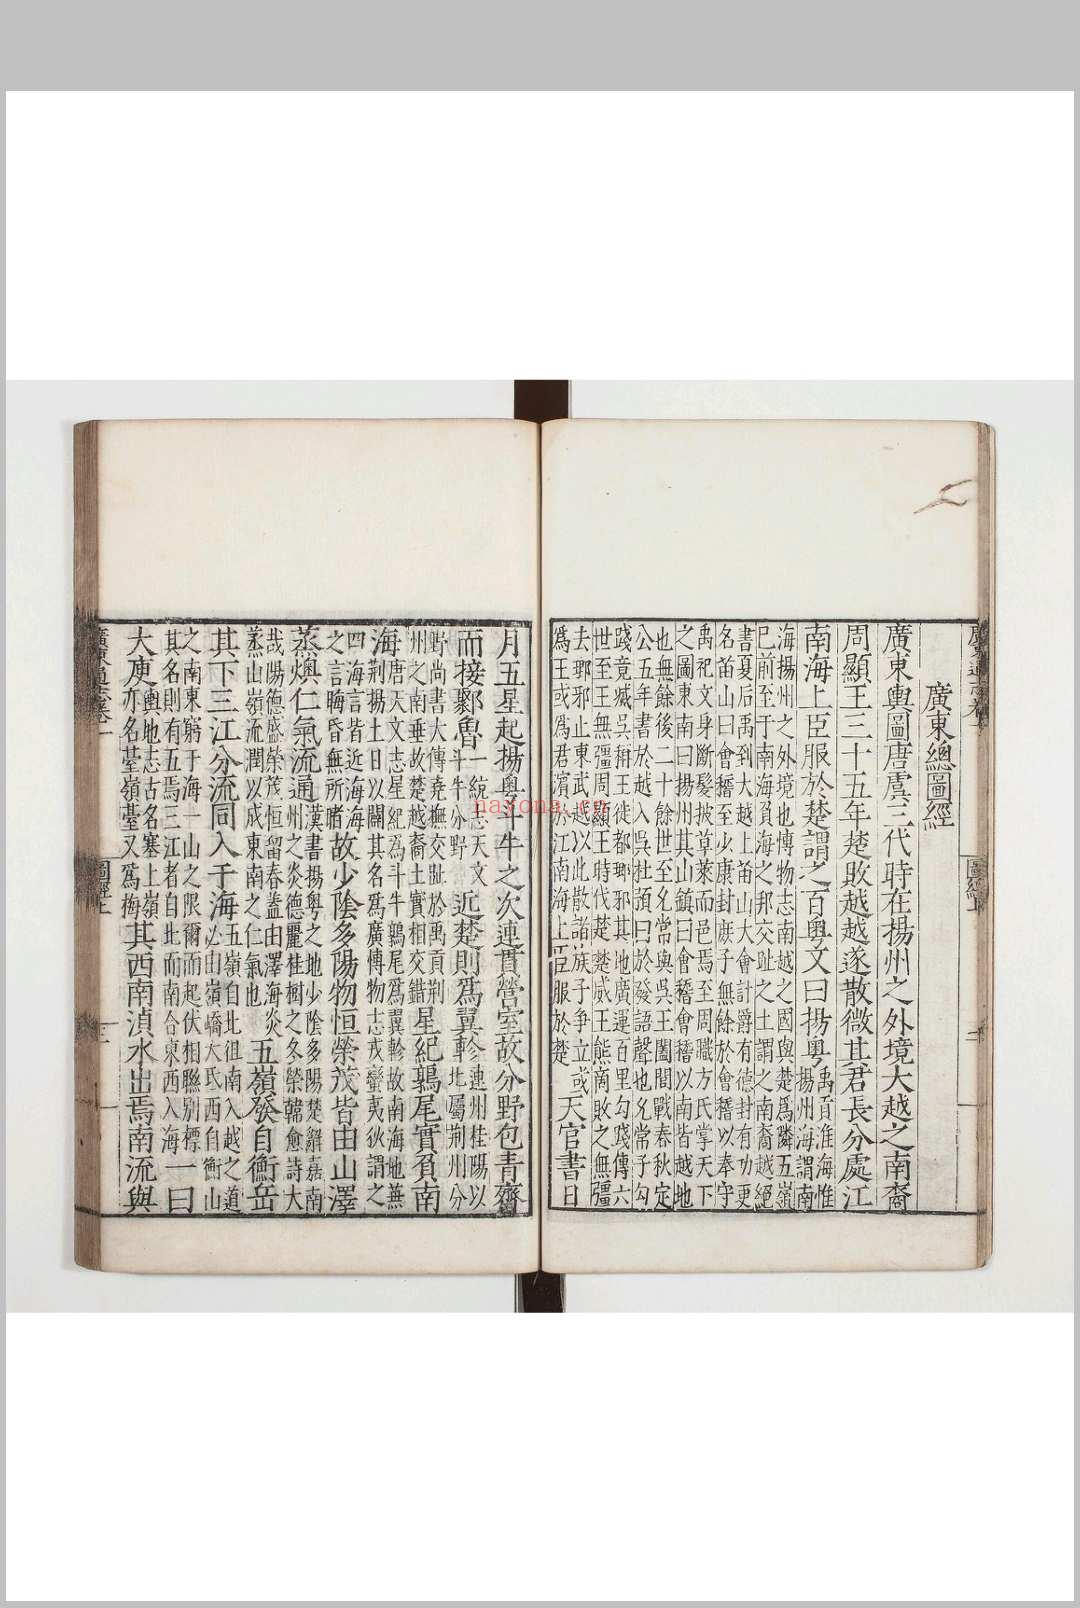 廣東通志卷一
圖經上
二
廣東總圖經
廣東輿圖唐虞三代時在揚州之外境大越之南裔
周顯王三十五年楚敗越越遂散微其君長分處江
南海上臣服於楚謂之百粵文曰揚粵禹貢淮海惟
揚州海謂南
海揚州之外境也博物志南越之國與楚為隣五嶺
已前至于南海負海之邦交趾之土謂之南裔越絕
書夏后禹到大越上苗山大會計爵有德封有功更
名苗山曰會稽至少康封庶子無餘於會稽以奉守
禹祀文身斷髮披草萊而邑焉至周職方氏掌天下
之圖東南曰揚州其山鎮曰會稽會稽以南皆越地
也無餘後二十餘世至允常與吳王闔閭戰春秋定
公五年書於越入吳杜預曰於發語聲也允常子勾
踐竟滅吳稱王徙都瑯邪其地廣運百里勾踐傳六
世至王無彊周顯王時伐楚楚威王熊商敗之無彊
去瑯邪止東武越以此散諸族子爭立或
為王或為君濱於江南海上臣服於楚
天官書曰
月五星起揚粵斗牛之次連貫營室故分野包青齊
而接鄒魯一統志天文
斗牛分野
近楚則為翼軫連州桂陽以
北屬荊州分
野尚書大傳堯撫交趾於禹貢荊
州之南垂故楚越裔土實相交錯
星紀鶉尾實負南
海唐天文志星紀為斗牛鶉尾為翼軫故南海地兼
荊揚土曰以闢其名為廣博物志戎蠻夷狄謂之
四海言皆近海海
之言晦昏無所睹
故少陰多陽物恒榮茂皆由山澤
蒸燠仁氣流通漢書揚粵之地少陰多陽楚辭嘉南
州之炎德麗桂樹之冬榮韓愈詩大
哉陽德盛榮茂恒留春蓋由澤海炎
蒸山嶺流潤以成東南之仁氣也
五嶺發自衡岳
其下三江分流同入于海五嶺自北徂南入越之道
必由嶺嶠大氐西自衡山
之南東窮于海一山之限爾而起伏相聯別標
其名則有五焉三江者自北而南合東西入海
一曰
大庾輿地志古名塞上嶺
亦名臺嶺臺又為梅
其西南湞水出焉南流與
廣東通志卷一
圖經上
三
nayona.cn